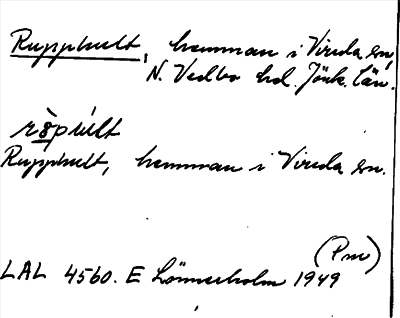 Rupphult, hemman i Vireda sn,
N. Vedbo hd. Jönk. län.
röpùlt
Rupphult, hemman i Vireda sn.
(Pm)
LAL 4560. E Lönnerholm 1949